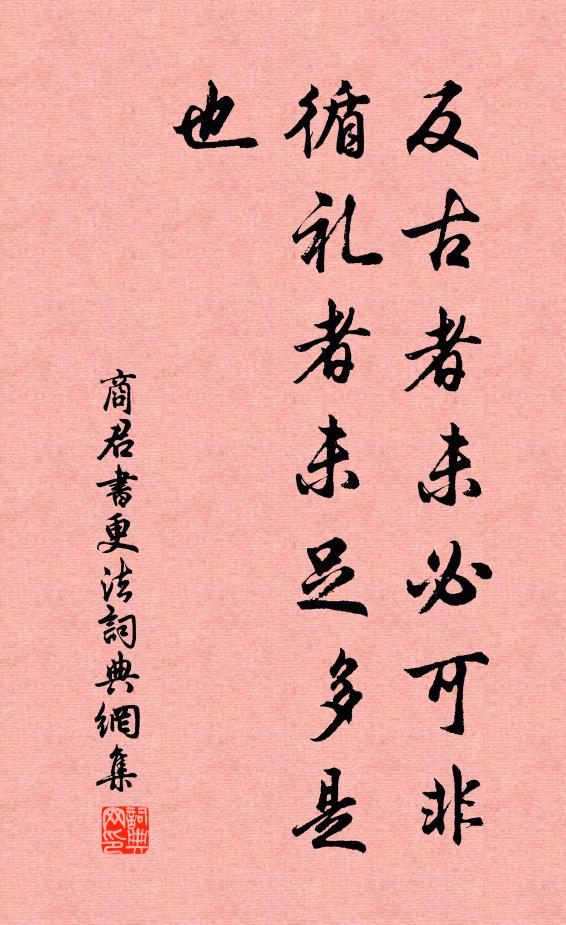 反古者未必可非
循礼者未足多是
也
商君書更法詞典網集
詞典网印